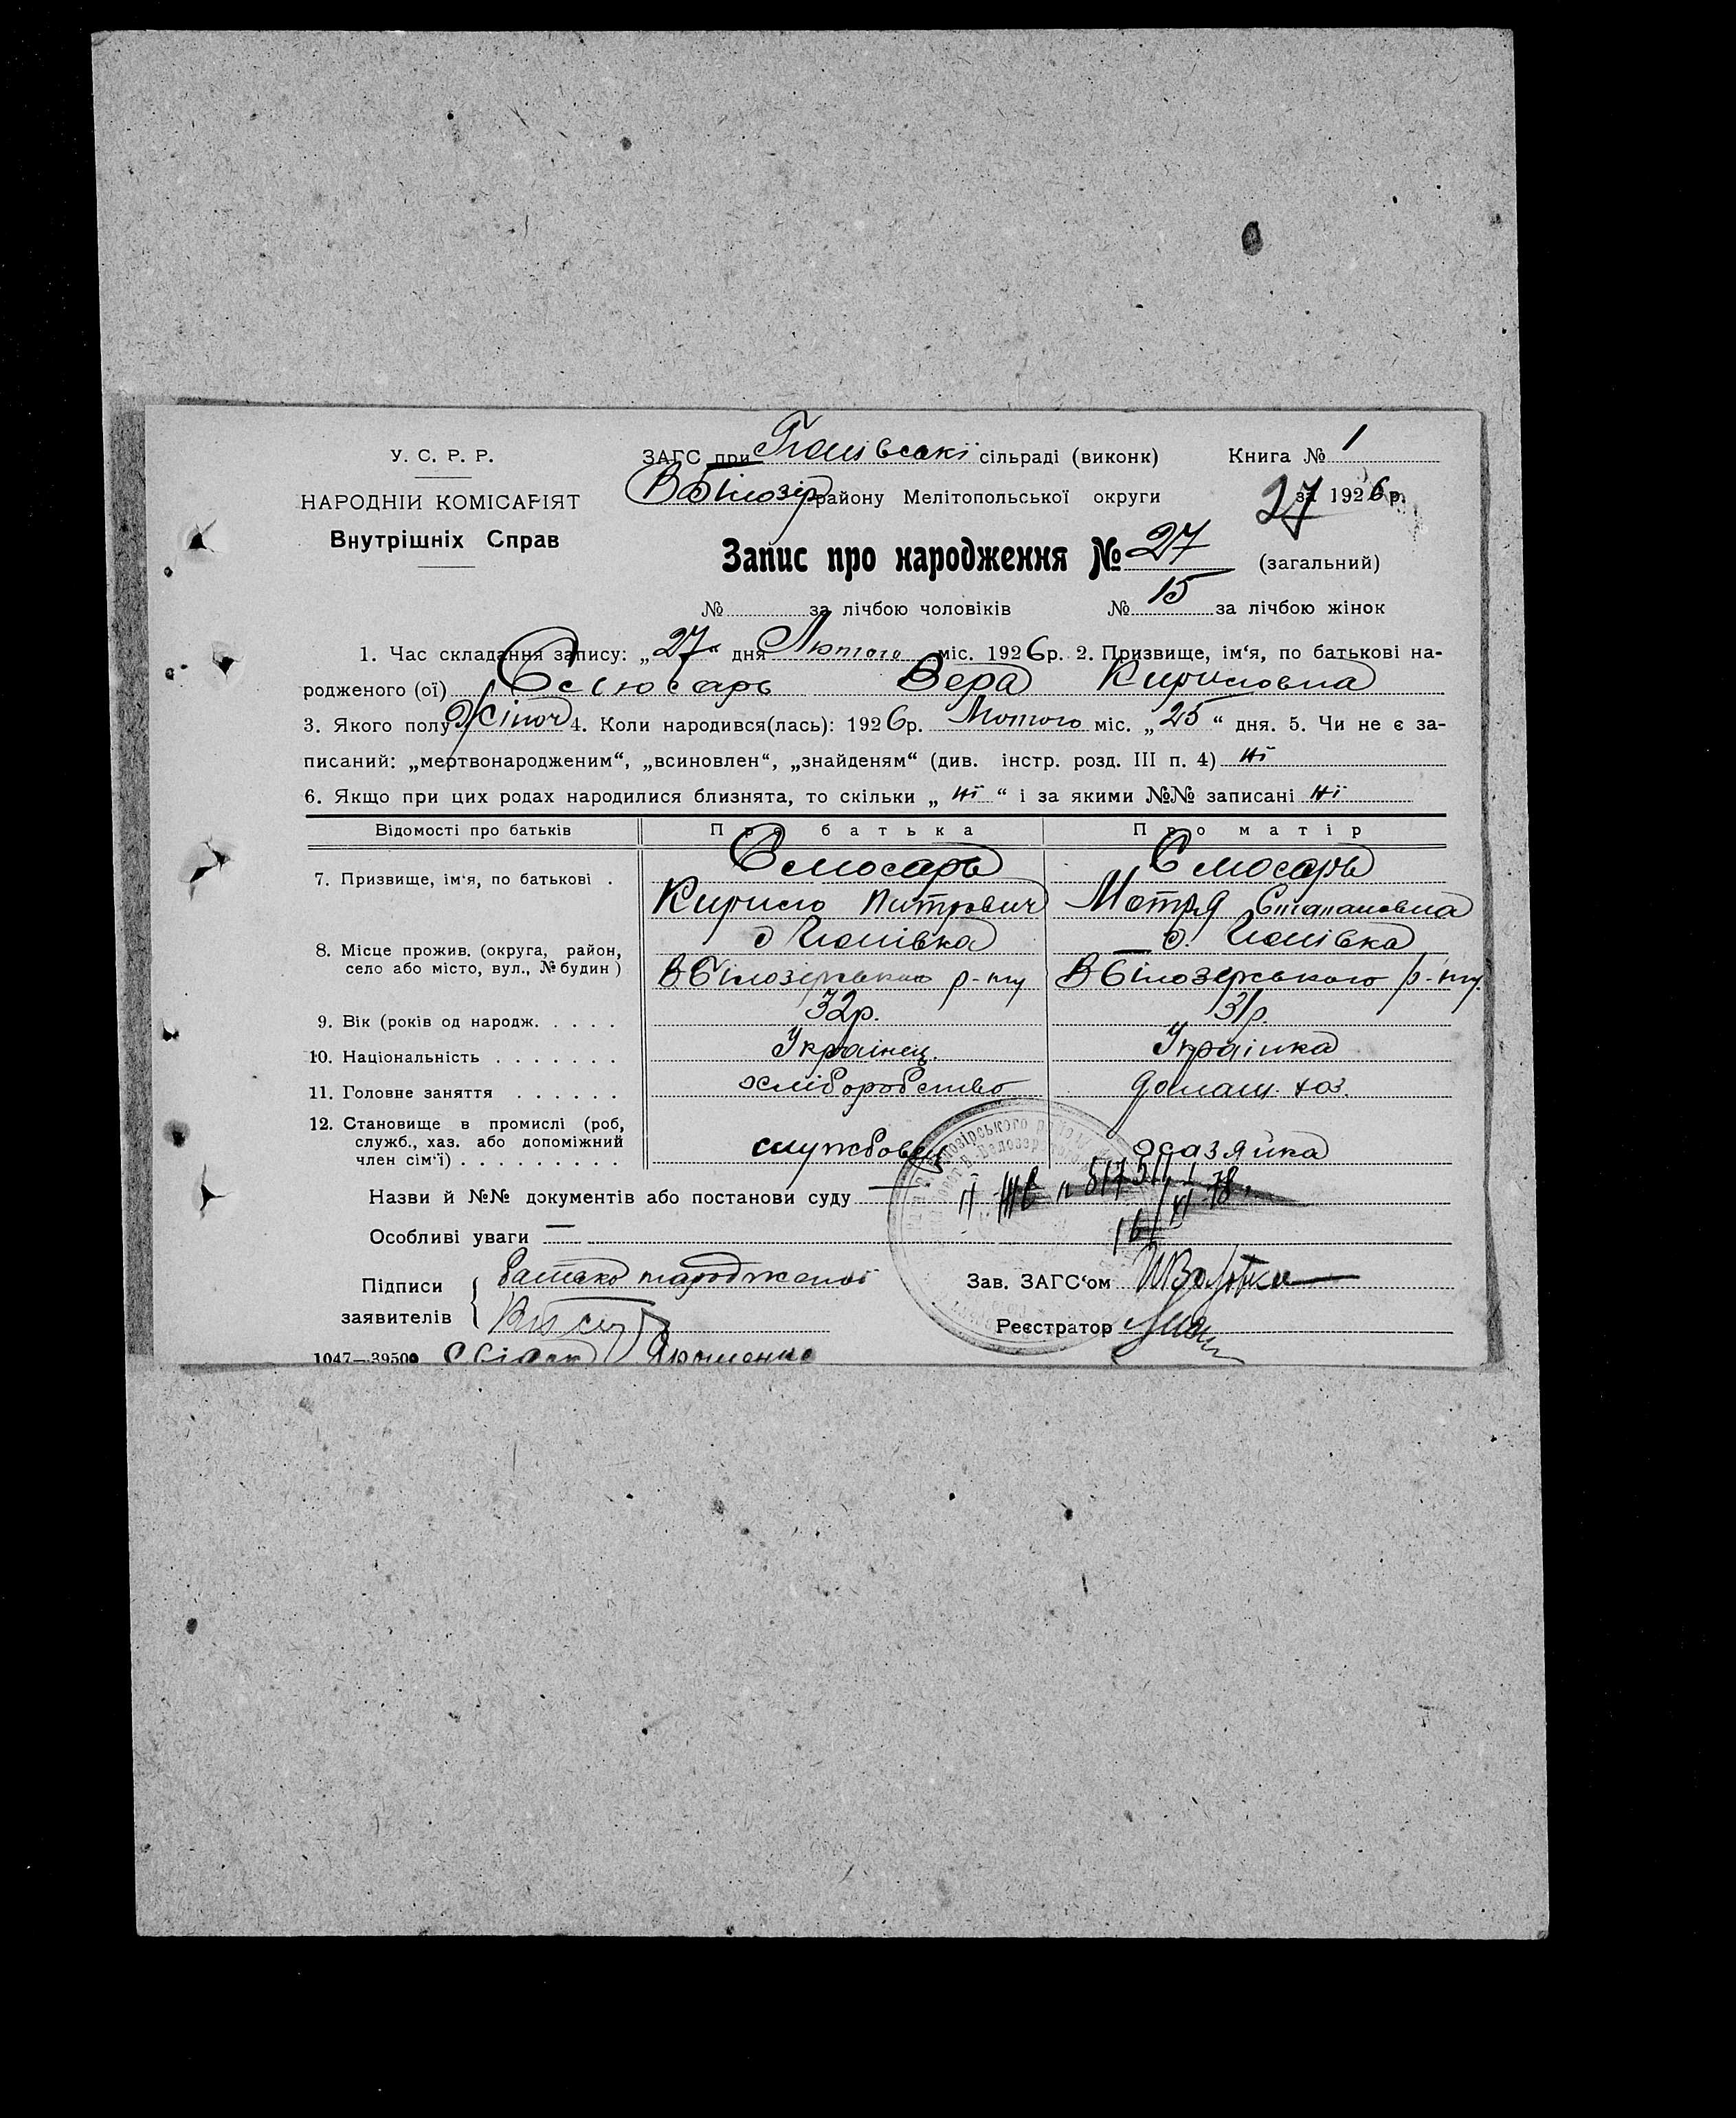 У. С. Р. Р.
НАРОДНІЙ КОМІСАРІЯТ
Внутрішніх Справ
ЗАГС при сільраді (виконк) Книга № 1
В Білозір району Мелітопольської округи за 1926 р.
27
Запис про народження № 27 (загальний)
№ за лічбою чоловіків № 15 за лічбою жінок
1. Час складання запису: „27“ дня Лютого міс. 1926 р. 2. Призвище, ім‘я, по батькові на-
родженого (ої) Слюсарь Вера Кириловна
3. Якого полу Жіноч 4. Коли народився(лась): 1926 р. Лютого міс. „25“ дня. 5. Чи не є за-
писаний: „мертвонародженим“, „всиновлен“, „знайденям“ (див. інстр. розд. III п. 4) ні
6. Якщо при цих родах народилися близнята, то скільки „ні“ і за якими №№ записані ні
Відомості про батьків Про батька Про матір
7. Призвище, ім‘я, по батькові . Слюсарь Слюсарь
Кирило Питрович Мотря Стипановна
8. Місце прожив. (округа, район,
село або місто, вул., № будин )
В Білозерського р-ну В Білозерського р-ну
9. Вік (років од народж. . . . . 32 р. 31 р.
10. Національність . . . . . . . Українец. Українка
11. Головне заняття . . . . . . хліборобство домаш. хоз.
12. Становище в промислі (роб,
служб., хаз. або допоміжний
член сім‘ї) . . . . . . . . . службовец хазяйка
Назви й №№ документів або постанови суду —
Особливі уваги —
Підписи
заявителів
батько народженої
Зав. ЗАГС‘ом
Реєстратор
1047—39500